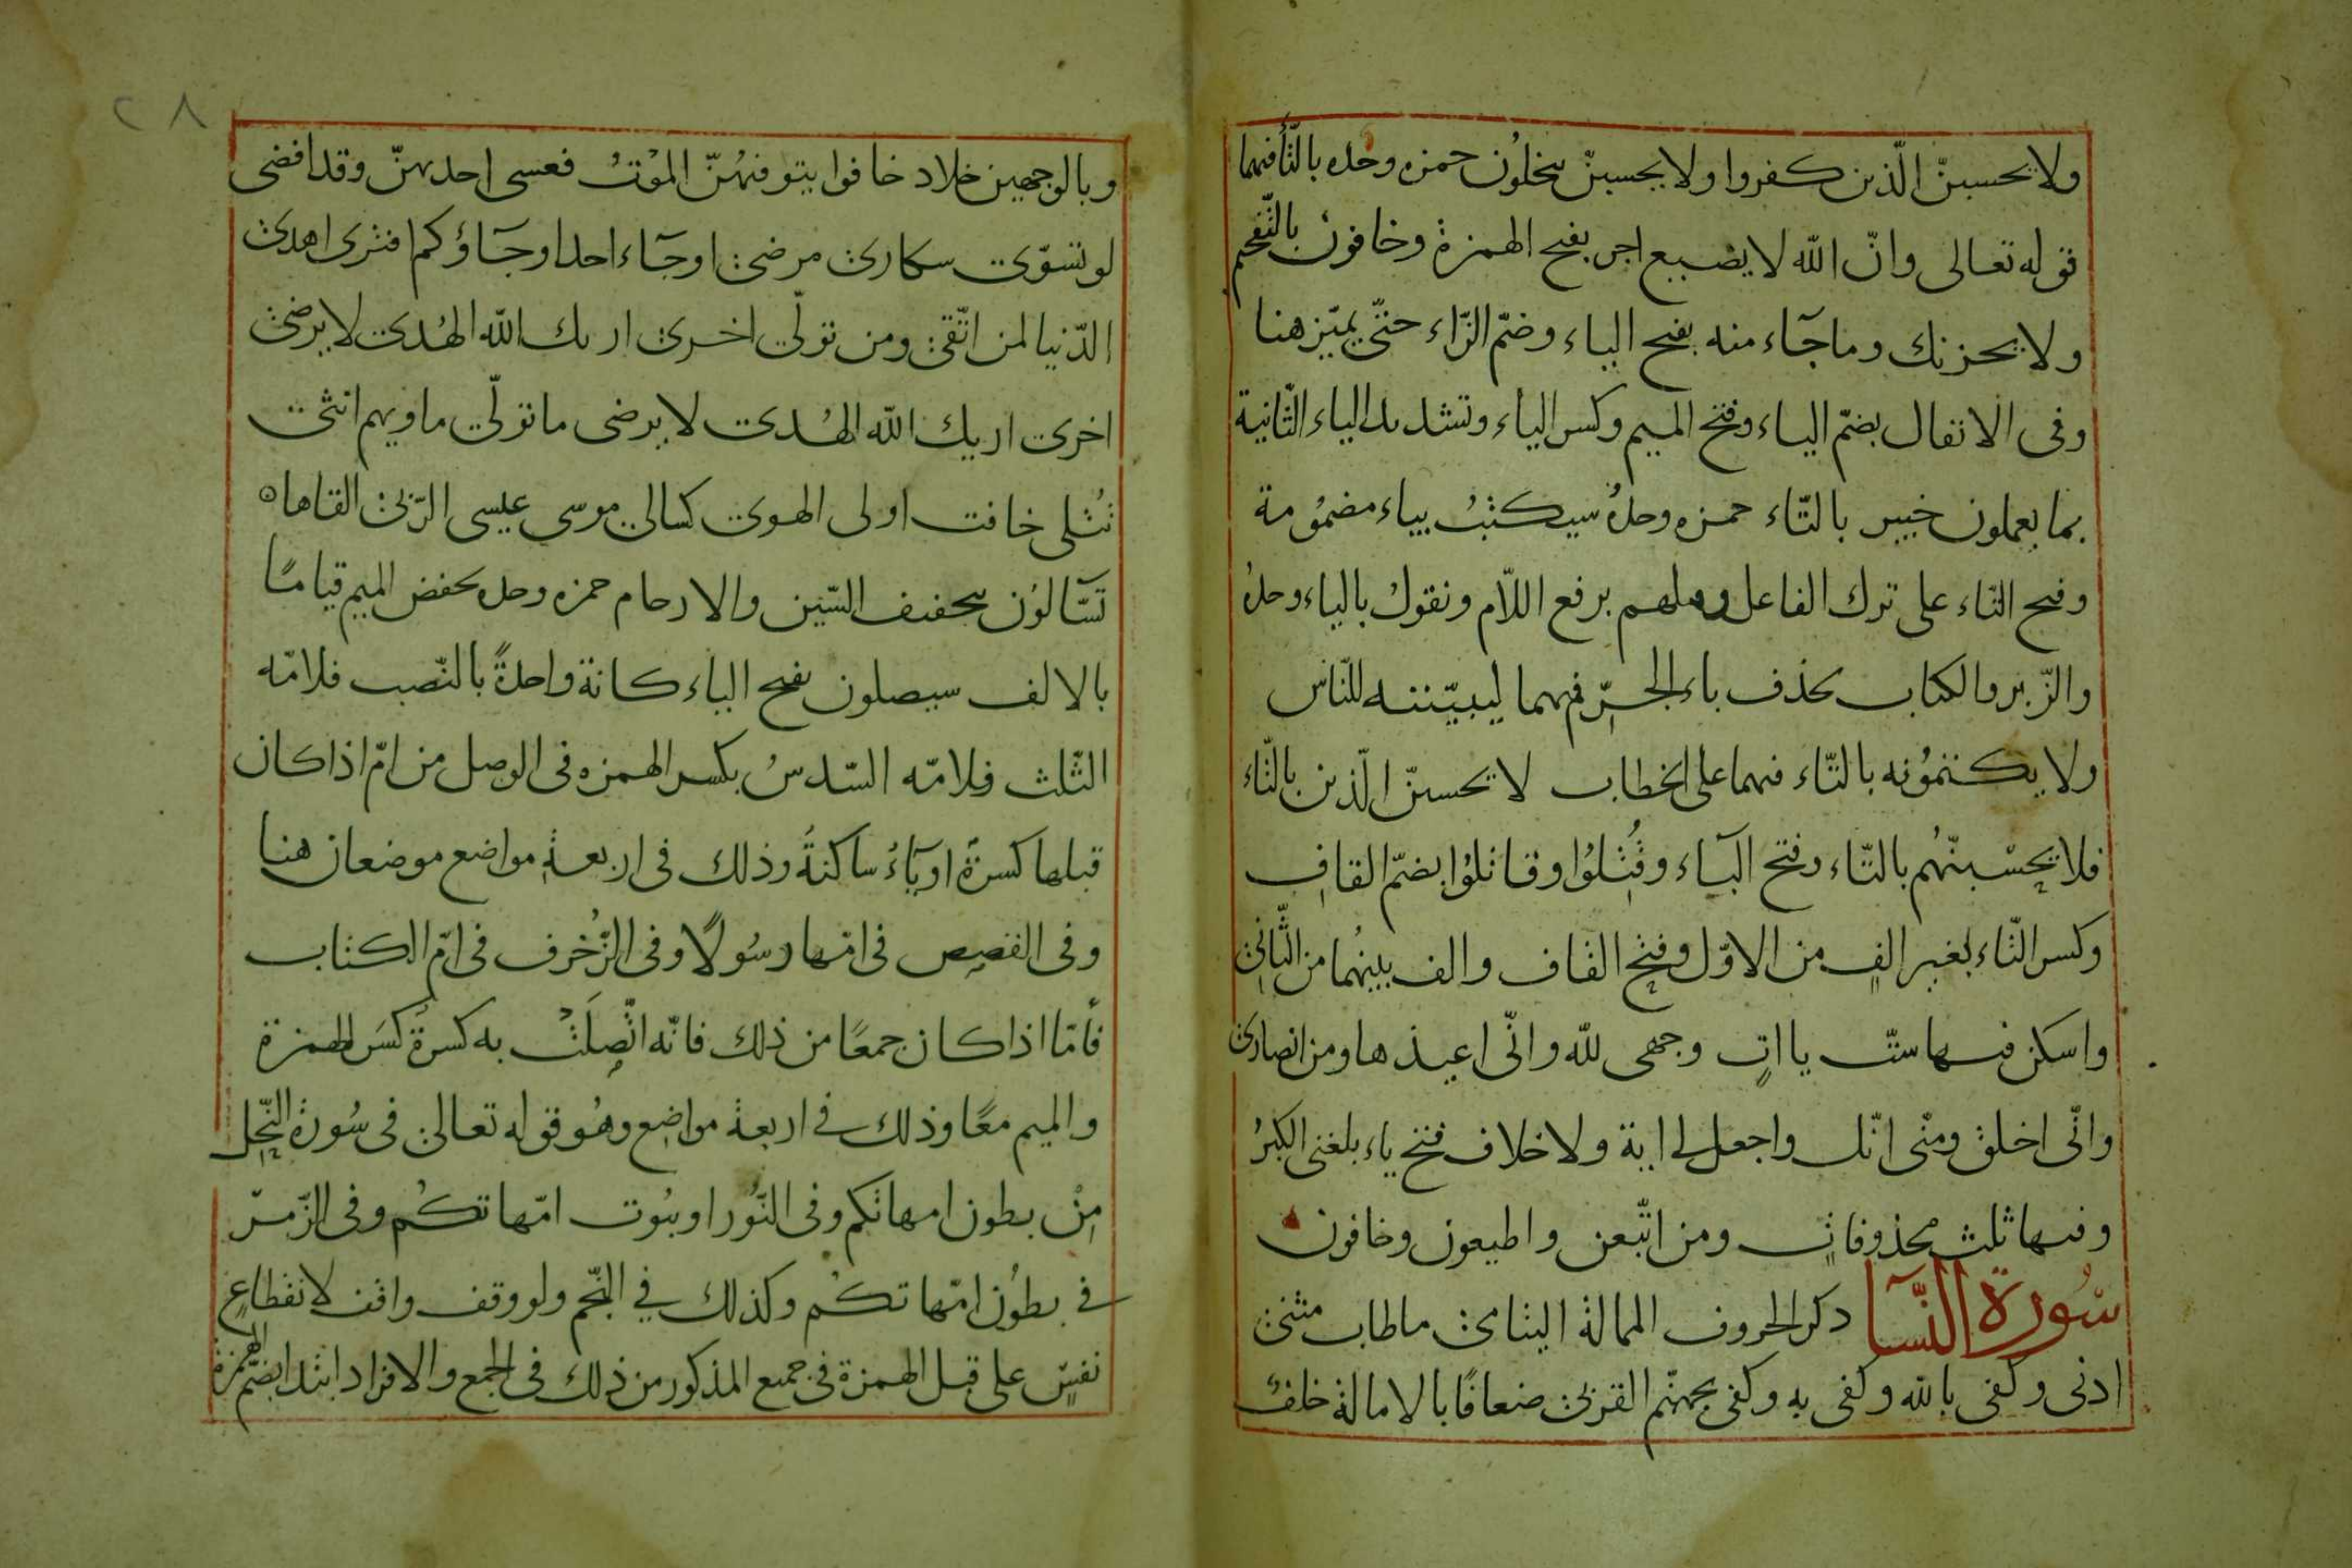 ولا يحسبنّ الّذين كفروا ولا يحسبنّ يبخلون حمزه وحده بالتّاء فيهما
قوله تعالى وانّ الله لا يضيع اجر بفتح الهمزة وخافون بالتّفخيم
ولا يحزنك وما جآء منه بفتح الياء وضمّ الزّاء حتّى يميّز هنا
وفى الانفال بضمّ الياء وفتح الميم وكسر الياء وتشديد الياء الثّانية
بما يعملون خبير بالتّاء حمزه وحدهُ سيكتبُ بياء مضمُومة
وفتح التاء على ترك الفاعل وقتلهم برفع اللاّم ونقول بالياء وحدهُ
والزّبر والكتاب بحذف باء الجرّ فيهما ليبيّننه للنّاس
ولا يكتمُونه بالتّاء فيهما على الخطاب لا تحسبنّ الّذين بالتّاء
فلا تحسْبنّهُم بالتّاء وفتح البآء وقُتِلُوا وقاتلُوا بضمّ القافِ
وكسر التّاء بغير الفٍ من الاوّل وفتح القاف والف بينهُما من الثّانى
واسكن فيها ستّ يااتٍ وجهى للّه وانّى اعيذها ومن انصارى
وانّى اخلق ومنّى انّك واجعل لى اية ولا خلاف فتح ياء بلغنى الكبرُ
وفيها ثلث محذوفاتٍ ومن اتّبعن واطيعون وخافون
سُورة النّسآ ذكر الحروف الممالة اليتامى ما طاب مثنى
ادنى وكفى بالله وكفى به وكفى بجهنّم القربى ضعافًا بالامالة خلف
٢٨
وبالوجهين خلاد خافوا يتوفيهُنّ المَوْتُ فعسى احديهنّ وقد افضى
لو تسوّى سكارى مرضى او جآء احد او جآؤكم افترى اهدى
الدّنيا لمن اتّقى ومن تولّى اخرى اريك الله الهُدى لا يرضى
اخرى اريك الله الهُدى لا يرضى ما تولّى ماويهم انثى
تُتلى خافت اولى الهوى كسالى موسى عيسى الرّبى القاها ه
تَسّآلوُن بتخفيف السّين والارحام حمزه وحده بخفض الميم قيامًا
بالالف سيصلون بفتح الياء كانة واحدةً بالنّصب فلامّه
الثّلث فلامّه السّدسُ بكسر الهمزه فى الوصل من امّ اذا كان
قبلها كسرةٌ او يآءٌ ساكنةٌ وذلك فى اربعةِ مواضع موضعان هنا
وفى القصص فى امّها رسُولًا وفى الزّخرف فى امّ الكتاب
فأمّا اذا كان جمعًا من ذلك فانّه اتّصِلَتْ به كسرةٌ كسَر الهمزة
والميم معًا وذلك فى اربعة مواضِع وهُو قوله تعالى فى سُورة النّحل
مِنْ بطون امهاتكم وفى النّور او بيُوت امّهاتكُم وفى الزّمرّ
فى بطوُن امّهاتكُم وكذلك في النّجم ولو وقف واقف لانقطاعِ
نفسٍ على قبل الهمزة فى جميع المذكور من ذلك فى الجمع والافراد ابتدا بضمّ الهمزة